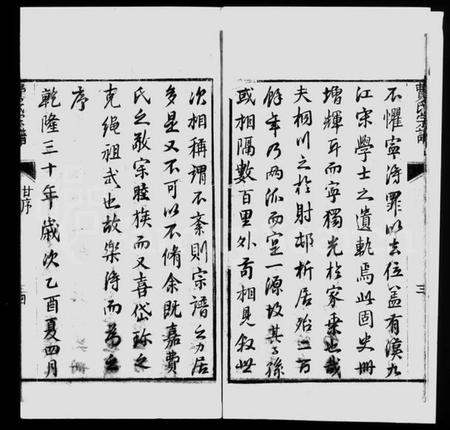 不懼寧得罪以去位益有漢九
江宋學士之遺軌焉此固史冊
增輝耳而寧獨光於家乗也哉
夫桐川之於射邨析居殆二百
餘年乃兩派而寔一源故其子孫
或相隔數百里外苟相見叙世
次相稱謂不紊則宗譜之力居
多是又不可以不脩余既嘉費
氏之敬宗睦族而又喜岱珎之
克繩祖武也故樂得而為之
序
乾隆三十年歲次乙酉夏四月
甘序